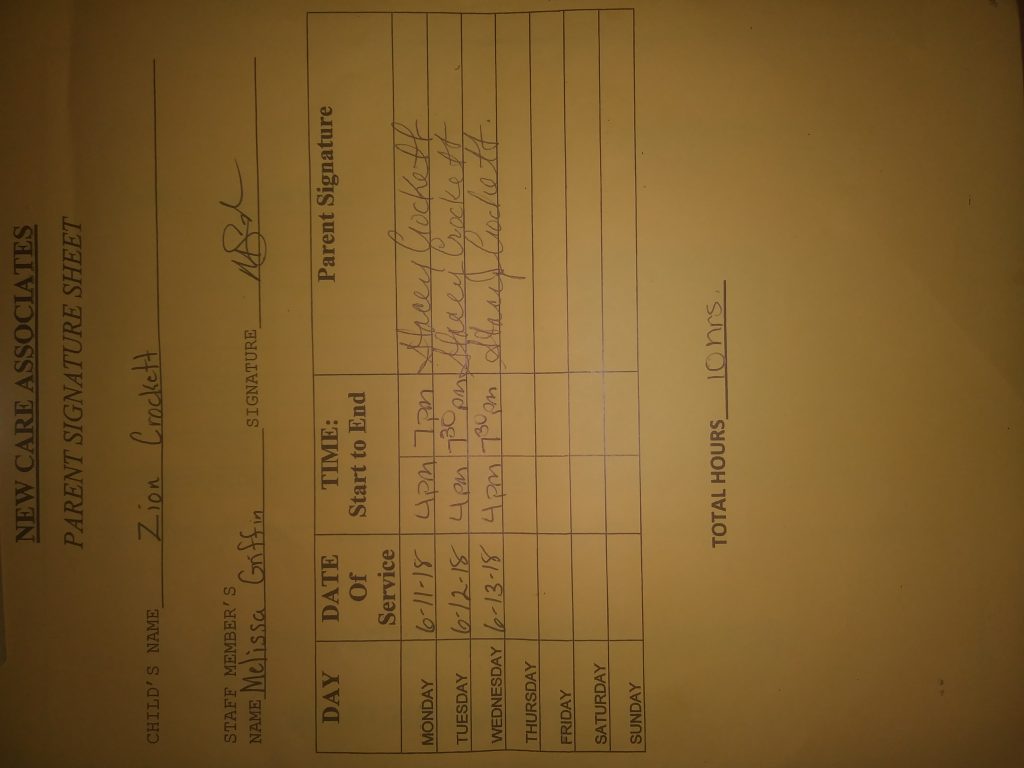 NEW CARE ASSOCIATES
PARENT SIGNATURE SHEET
CHILD'S NAME Zion Crockett
STAFF MEMBER'S
NAME Melissa Griffin SIGNATURE
DAY DATE Of Service TIME: Start to End Parent Signature
MONDAY 6-11-18 4pm 7pm Stacey Crockett
TUESDAY 6-12-18 4pm 730pm Stacey Crockett
WEDNESDAY 6-13-18 4pm 730pm Stacey Crockett.
THURSDAY
FRIDAY
SATURDAY
SUNDAY
TOTAL HOURS 10hrs.